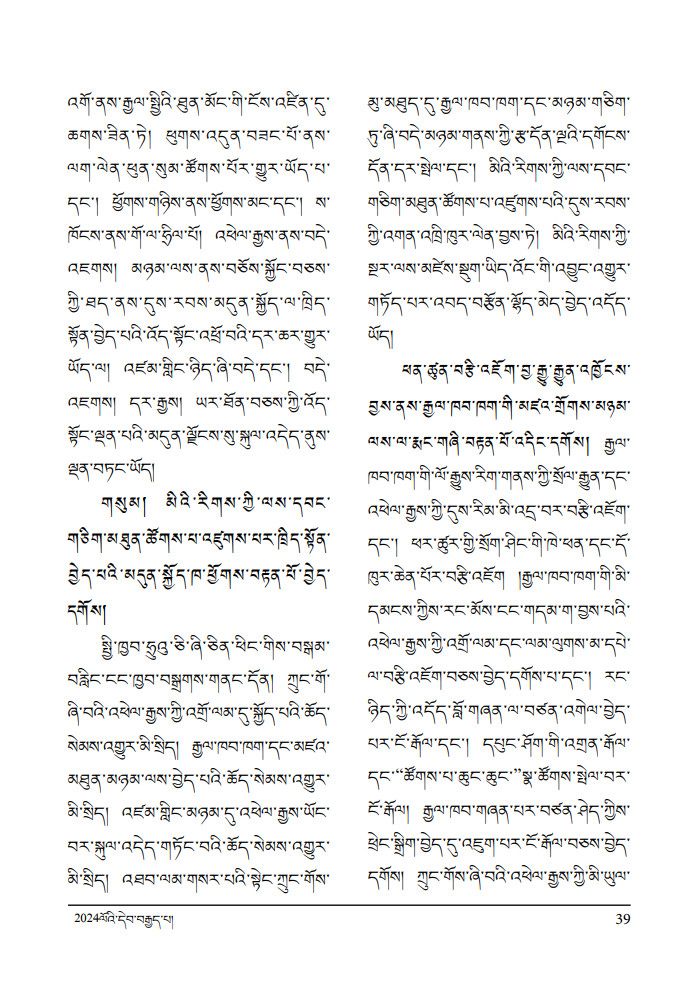 འགོ་ནས་རྒྱལ་སྤྱིའི་ཐུན་མོང་གི་ངོས་འཛིན་དུ་
ཆགས་ཟིན་ཏེ། ཕུགས་འདུན་བཟང་པོ་ནས་
ལག་ལེན་ཕུན་སུམ་ཚོགས་པོར་གྱུར་ཡོད་པ་
དང་། ཕྱོགས་གཉིས་ནས་ཕྱོགས་མང་དང་། ས་
ཁོངས་ནས་གོ་ལ་ཧྲིལ་པོ། འཕེལ་རྒྱས་ནས་བདེ་
འཇགས། མཉམ་ལས་ནས་བཅོས་སྐྱོང་བཅས་
ཀྱི་ཐད་ནས་དུས་རབས་མདུན་སྐྱོད་ལ་ཁྲིད་
སྟོན་བྱེད་པའི་འོད་སྟོང་འཕྲོ་བའི་དར་ཆར་གྱུར་
ཡོད་ལ། འཛམ་གླིང་ཉིད་ཞི་བདེ་དང་། བདེ་
འཇགས། དར་རྒྱས། ཡར་ཐོན་བཅས་ཀྱི་འོད་
སྟོང་ལྡན་པའི་མདུན་ལྗོངས་སུ་སྐུལ་འདེད་ནུས་
ལྡན་བཏང་ཡོད།
གསུམ། མིའི་རིགས་ཀྱི་ལས་དབང་
གཅིག་མཐུན་ཚོགས་པ་འཛུགས་པར་ཁྲིད་སྟོན་
བྱེད་པའི་མདུན་སྐྱོད་ཁ་ཕྱོགས་བརྟན་པོ་བྱེད་
དགོས།
སྤྱི་ཁྱབ་ཧྲུའུ་ཅི་ཞི་ཅིན་ཕིང་གིས་བསྒམ་
བརླིང་ངང་ཁྱབ་བསྒྲགས་གནང་དོན། ཀྲུང་གོ་
ཞི་བའི་འཕེལ་རྒྱས་ཀྱི་འགྲོ་ལམ་དུ་སྐྱོད་པའི་ཆོད་
སེམས་འགྱུར་མི་སྲིད། རྒྱལ་ཁབ་ཁག་དང་མཛའ་
མཐུན་མཉམ་ལས་བྱེད་པའི་ཆོད་སེམས་འགྱུར་
མི་སྲིད། འཛམ་གླིང་མཉམ་དུ་འཕེལ་རྒྱས་ཡོང་
བར་སྐུལ་འདེད་གཏོང་བའི་ཆོད་སེམས་འགྱུར་
མི་སྲིད། འཐབ་ལམ་གསར་པའི་སྟེང་ཀྲུང་གོས་
མུ་མཐུད་དུ་རྒྱལ་ཁབ་ཁག་དང་མཉམ་གཅིག་
ཏུ་ཞི་བདེ་མཉམ་གནས་ཀྱི་རྩ་དོན་ལྔའི་དགོངས་
དོན་དར་སྤེལ་དང་། མིའི་རིགས་ཀྱི་ལས་དབང་
གཅིག་མཐུན་ཚོགས་པ་འཛུགས་པའི་དུས་རབས་
ཀྱི་འགན་འཁྲི་ཁུར་ལེན་བྱས་ཏེ། མིའི་རིགས་ཀྱི་
སྔར་ལས་མཛེས་སྡུག་ཡིད་འོང་གི་འབྱུང་འགྱུར་
གཏོད་པར་འབད་བརྩོན་ལྷོད་མེད་བྱེད་འདོད་
ཡོད།
ཕན་ཚུན་བརྩི་འཇོག་བྱ་རྒྱུ་རྒྱུན་འཁྱོངས་
བྱས་ནས་རྒྱལ་ཁབ་ཁག་གི་མཛའ་གྲོགས་མཉམ་
ལས་ལ་རྨང་གཞི་བརྟན་པོ་འདིང་དགོས། རྒྱལ་
ཁབ་ཁག་གི་ལོ་རྒྱུས་རིག་གནས་ཀྱི་སྲོལ་རྒྱུན་དང་
འཕེལ་རྒྱས་ཀྱི་དུས་རིམ་མི་འདྲ་བར་བརྩི་འཇོག་
དང་། ཕར་ཚུར་གྱི་སྲོག་ཤིང་གི་ཁེ་ཕན་དང་དོ་
ཁུར་ཆེན་པོར་བརྩི་འཇོག །རྒྱལ་ཁབ་ཁག་གི་མི་
དམངས་ཀྱིས་རང་མོས་ངང་གདམ་ག་བྱས་པའི་
འཕེལ་རྒྱས་ཀྱི་འགྲོ་ལམ་དང་ལམ་ལུགས་མ་དཔེ་
ལ་བརྩི་འཇོག་བཅས་བྱེད་དགོས་པ་དང་། རང་
ཉིད་ཀྱི་འདོད་བློ་གཞན་ལ་བཙན་འགེལ་བྱེད་
པར་ངོ་རྒོལ་དང་། དཔུང་ཤོག་གི་འགྲན་རྒོལ་
དང་“ཚོགས་པ་ཆུང་ཆུང་”སྣ་ཚོགས་སྤེལ་བར་
ངོ་རྒོལ། རྒྱལ་ཁབ་གཞན་པར་བཙན་ཤེད་ཀྱིས་
ཕྲེང་སྒྲིག་བྱེད་དུ་འཇུག་པར་ངོ་རྒོལ་བཅས་བྱེད་
དགོས། ཀྲུང་གོས་ཞི་བའི་འཕེལ་རྒྱས་ཀྱི་མི་ཡུལ་
2024ལོའི་དེབ་བརྒྱད་པ།
39